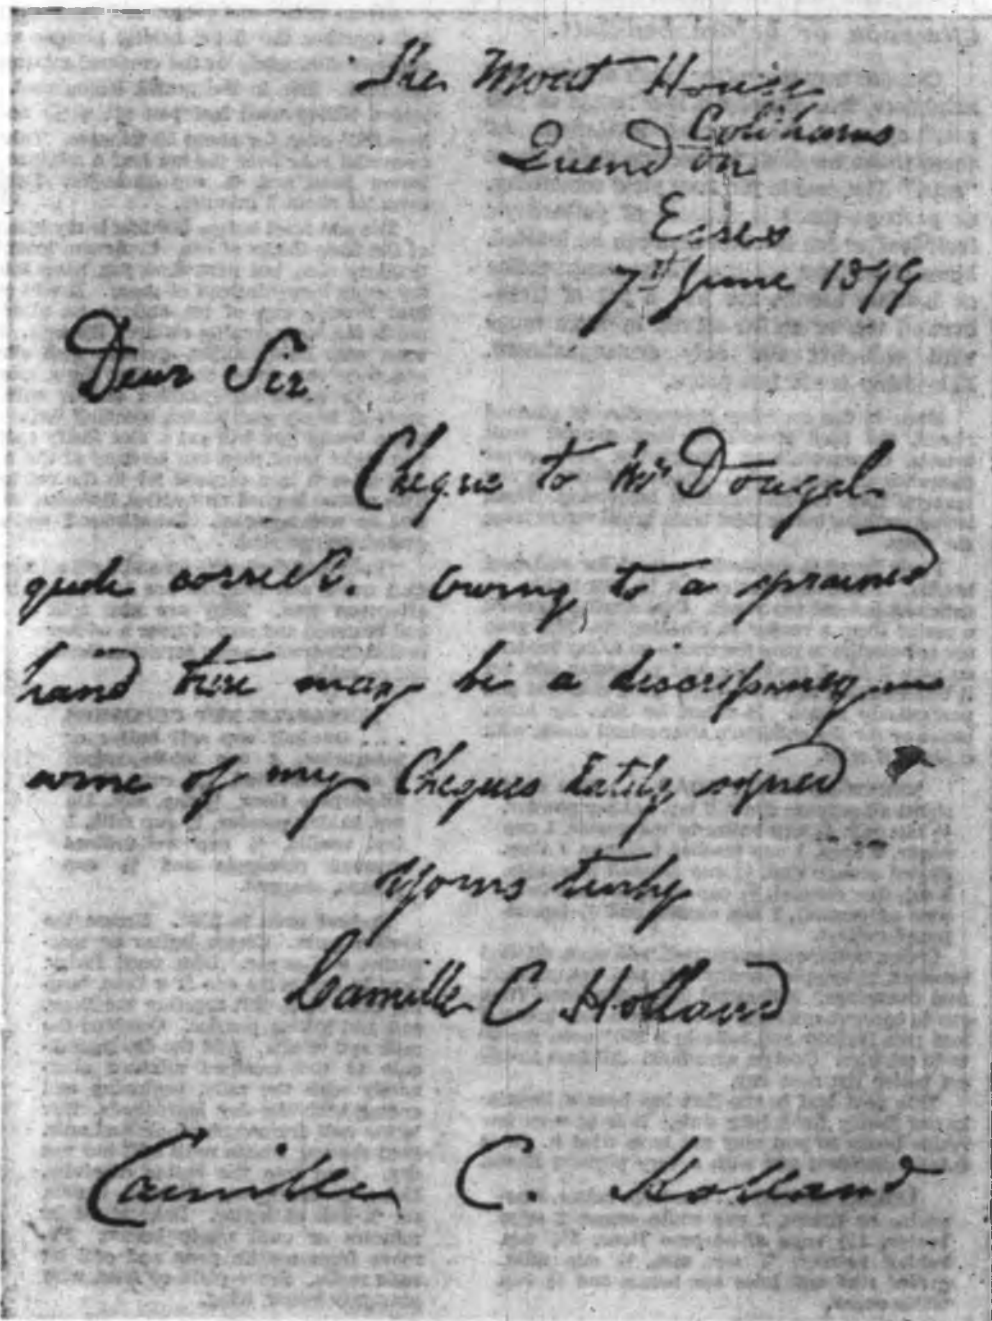 The Moat House
Coldhams
Quendon
Essex
7th June 1899
Dear Sir
Cheque to Mr Dougal
quite correct. Owing to a sprained
hand there may be a discrepancy in
some of my Cheques lately signed
Yours truly
Camille C Holland
Camille C. Holland